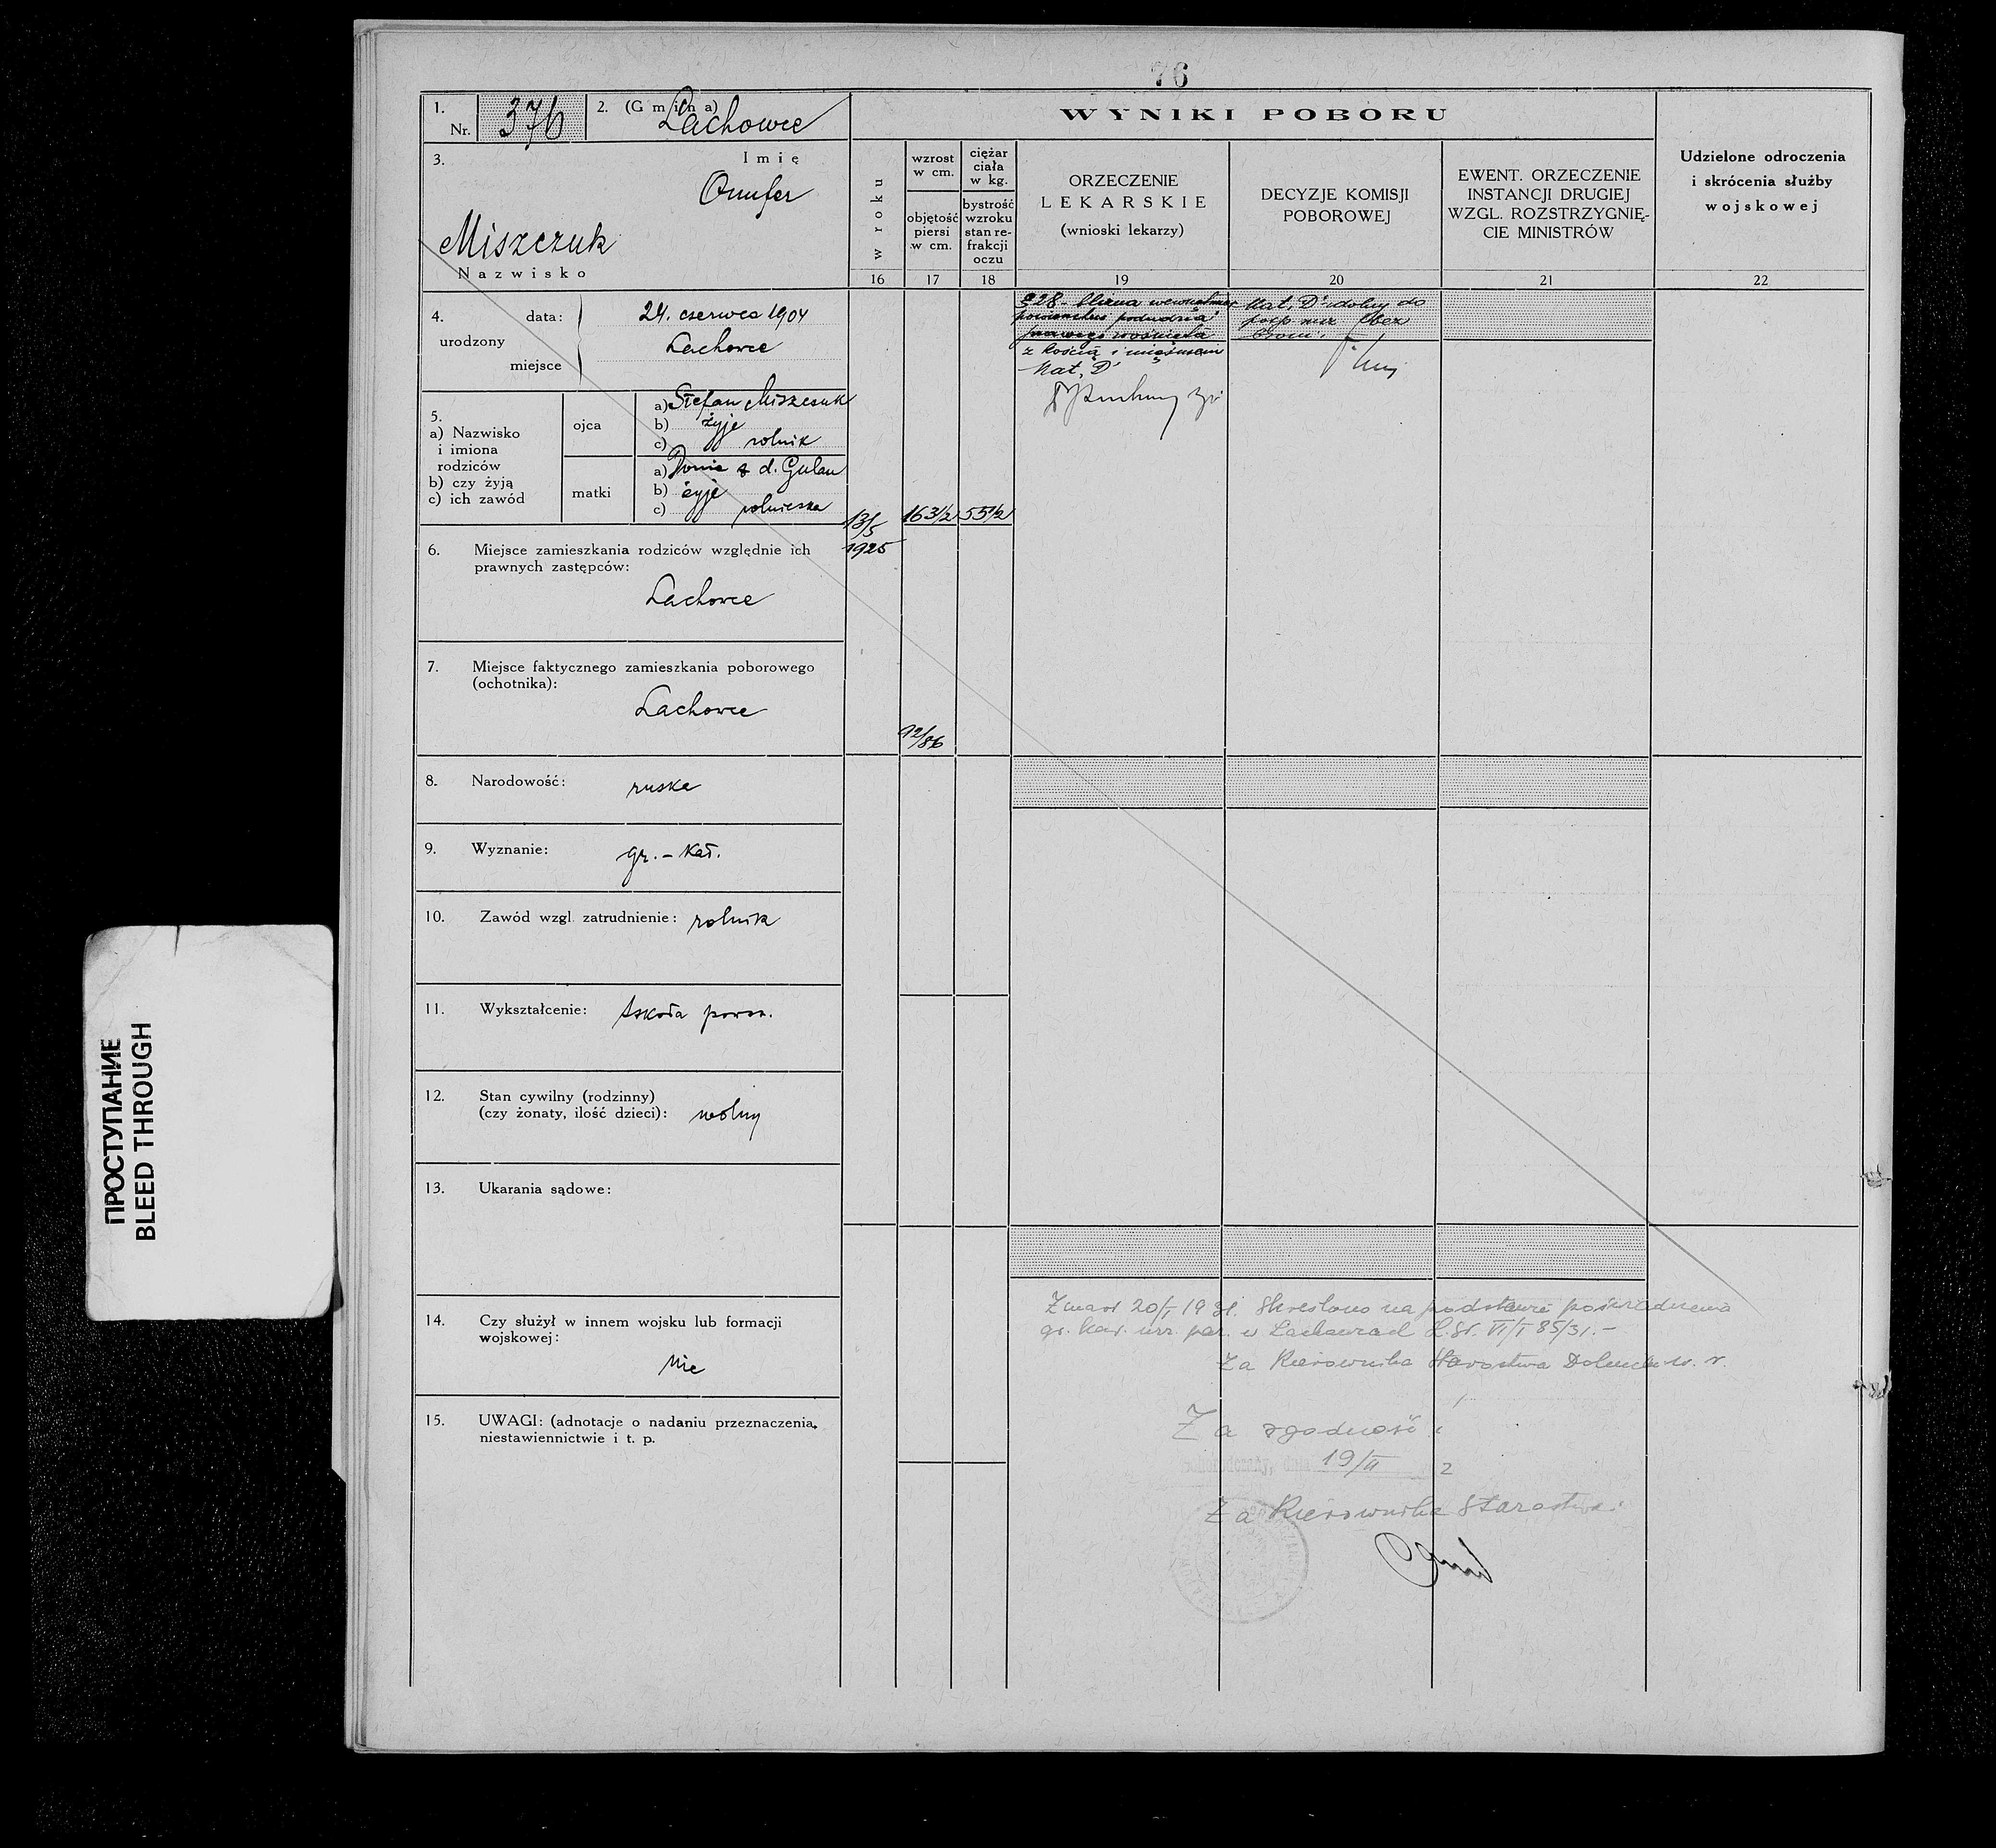 76
1.
Nr. 376
2. (Gmina) Lachowce
WYNIKI POBORU
Udzielone odroczenia
i skrócenia służby
wojskowej
3.
Imię
Onufer
Miszczuk
Nazwisko
w roku
wzrost
w cm.
objętość
piersi
w cm.
ciężar
ciała
w kg.
bystrość
wzroku
stan re-
frakcji
oczu
ORZECZENIE
LEKARSKIE
(wnioski lekarzy)
DECYZJE KOMISJI
POBOROWEJ
EWENT. ORZECZENIE
INSTANCJI DRUGIEJ
WZGL. ROZSTRZYGNIĘ-
CIE MINISTRÓW
16 17 18 19 20 21 22
4.
urodzony
data: 24. czerwca 1904
miejsce Lachowce
§ 28 - blizna
podudzia
prawego
z kością i mięśniem
Kat. D
Kat. D zdolny do
posp. rusz. bez
broni.
5.
a) Nazwisko
i imiona
rodziców
b) czy żyją
c) ich zawód
ojca
a) Stefan Miszczuk
b) żyje
c) rolnik
matki
a) z d. Gulan
b) żyje
c) rolniczka
13/5
1925
163½
55½
6. Miejsce zamieszkania rodziców względnie ich
prawnych zastępców:
Lachowce
7. Miejsce faktycznego zamieszkania poborowego
(ochotnika):
Lachowce
92/86
8. Narodowość: ruska
9. Wyznanie: gr.-kat.
10. Zawód wzgl. zatrudnienie: rolnik
11. Wykształcenie: szkoła powsz.
12. Stan cywilny (rodzinny)
(czy żonaty, ilość dzieci): wolny
13. Ukarania sądowe:
14. Czy służył w innem wojsku lub formacji
wojskowej:
Nie
15. UWAGI: (adnotacje o nadaniu przeznaczenia,
niestawiennictwie i t. p.
Zmarł 20/I 1931. Skreślono na podstawie poświadczenia
gr. kat. urz. par. w Lachowcach L. St. VI/1 85/31.-
Za Kierownika Starostwa w. r.
Za zgodność:
dnia 19/II 2
Za Kierownika Starostwa:
ПРОСТУПАНИЕ
BLEED THROUGH